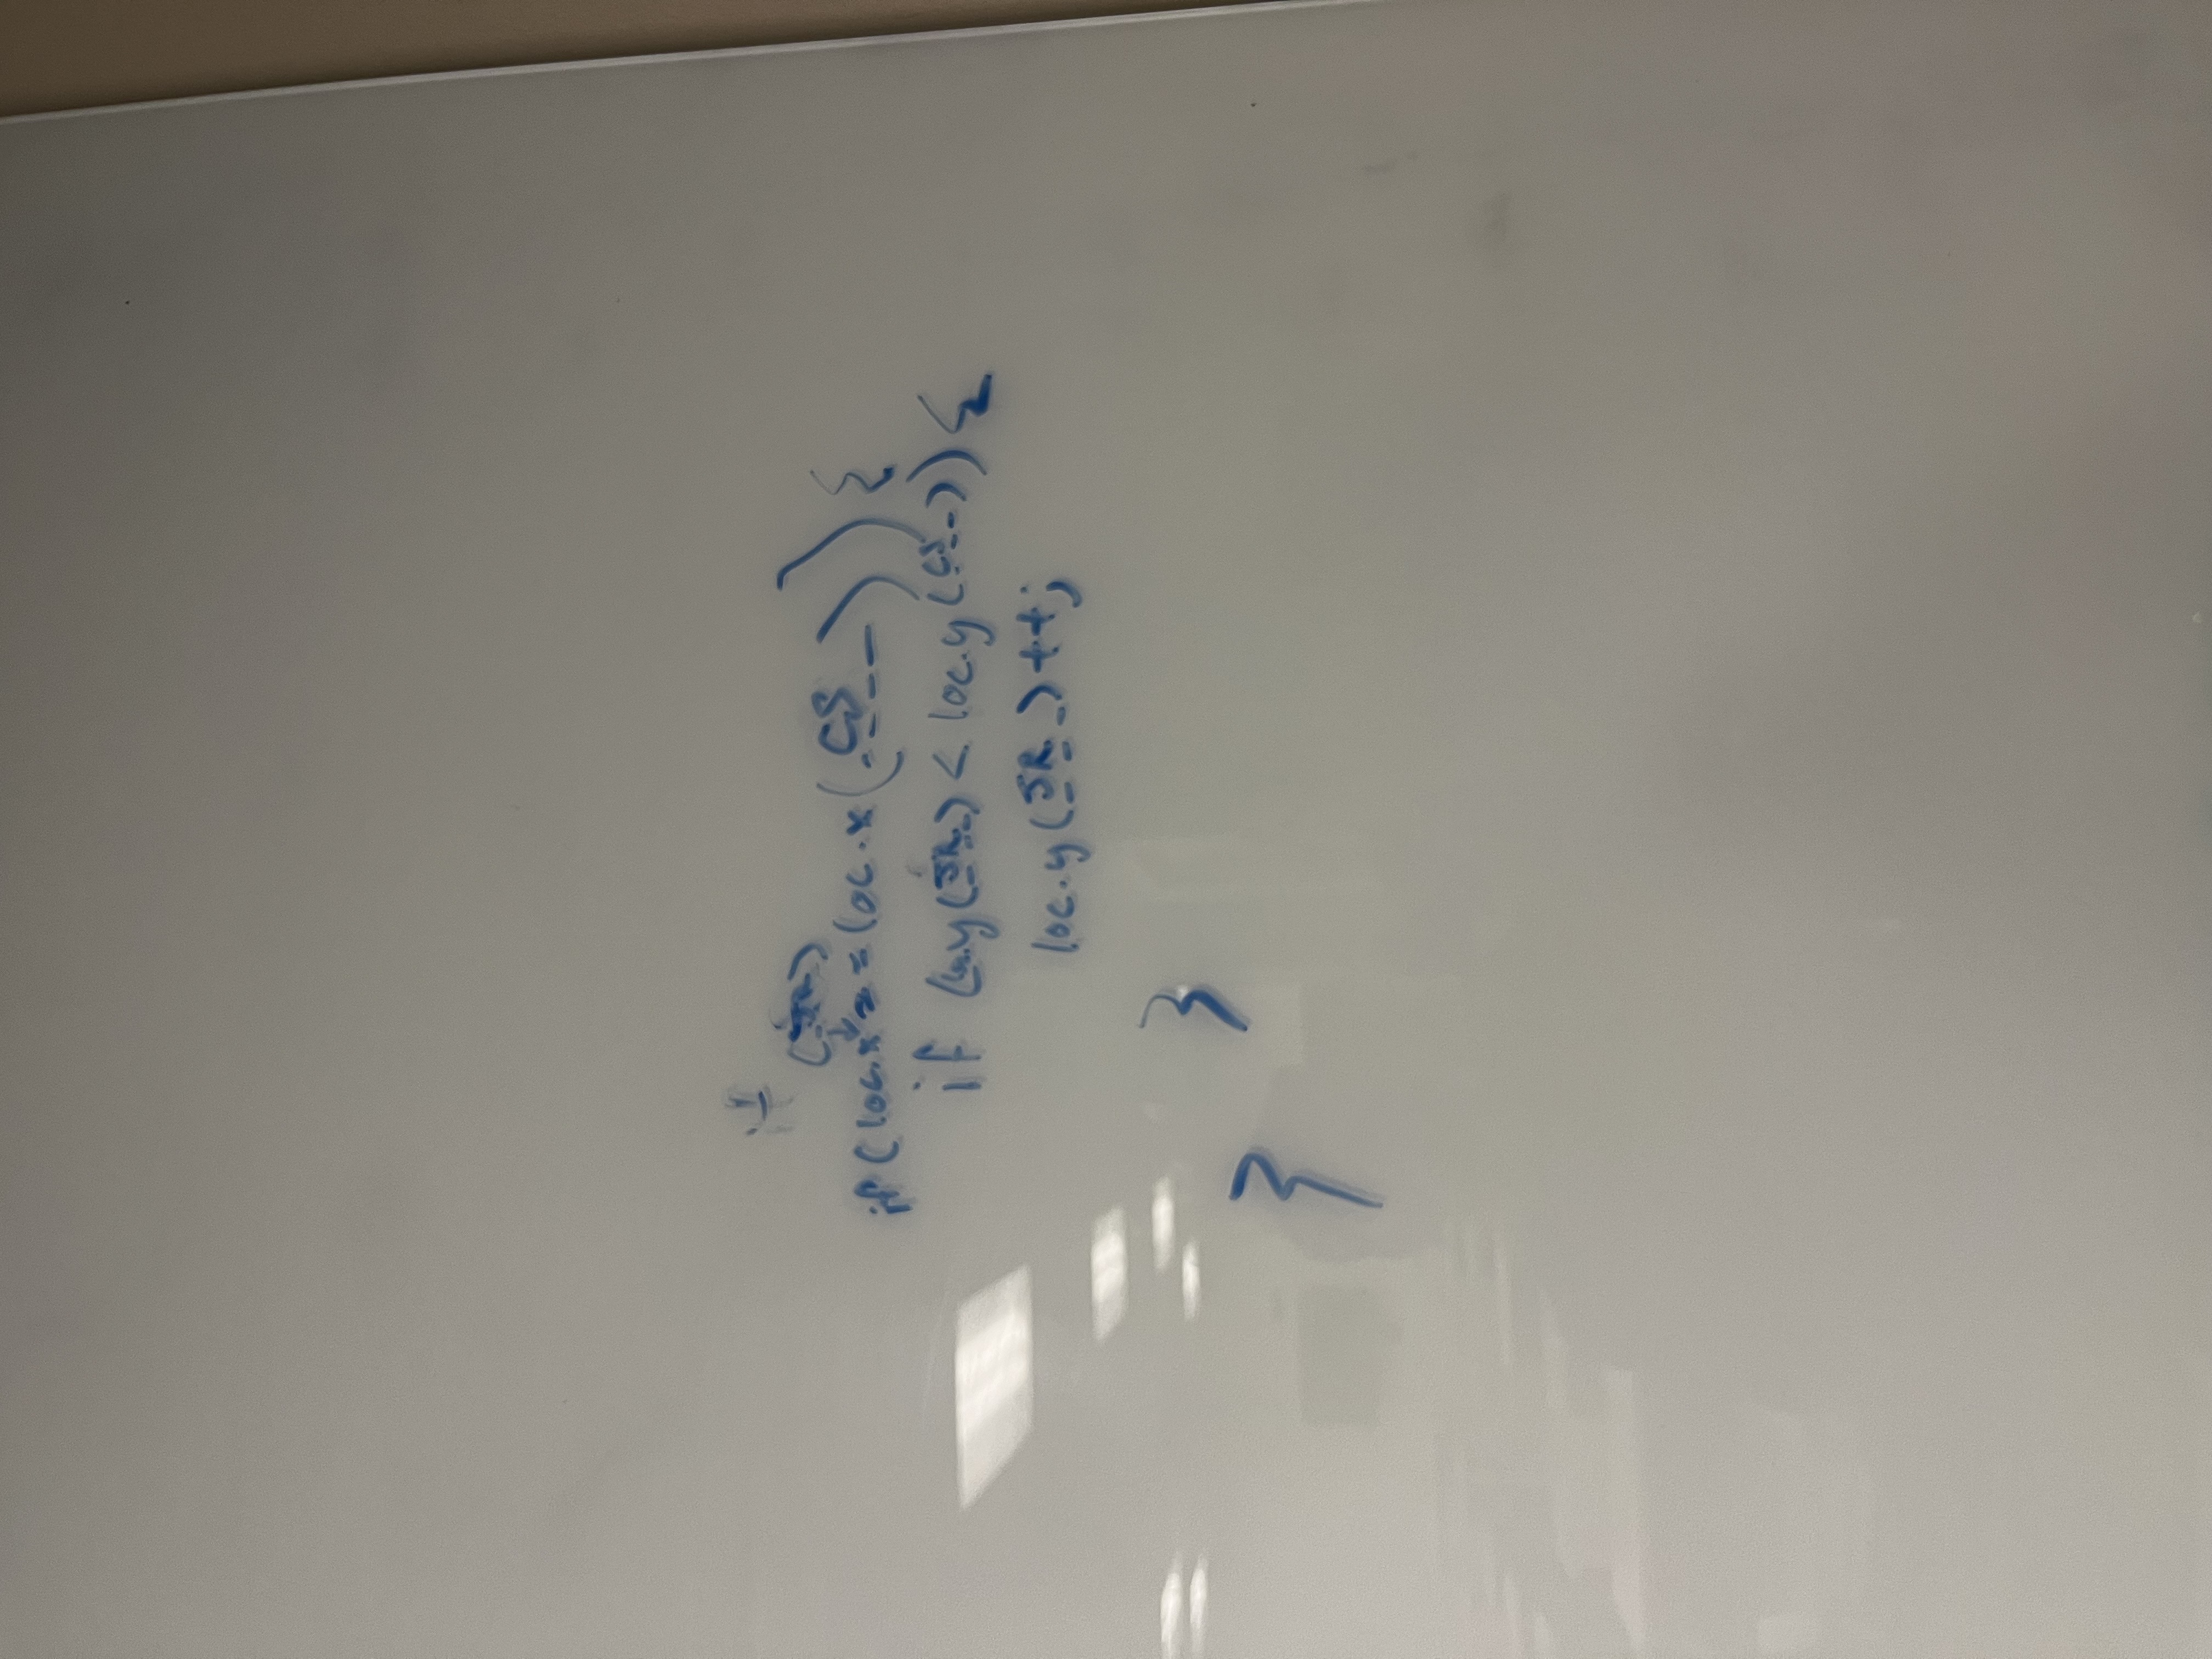 if
(JR)
if (loc.x == loc.x (CS)) {
if (loc.y (JR) < loc.y (CS)) {
loc.y (JR) ++;
}
}